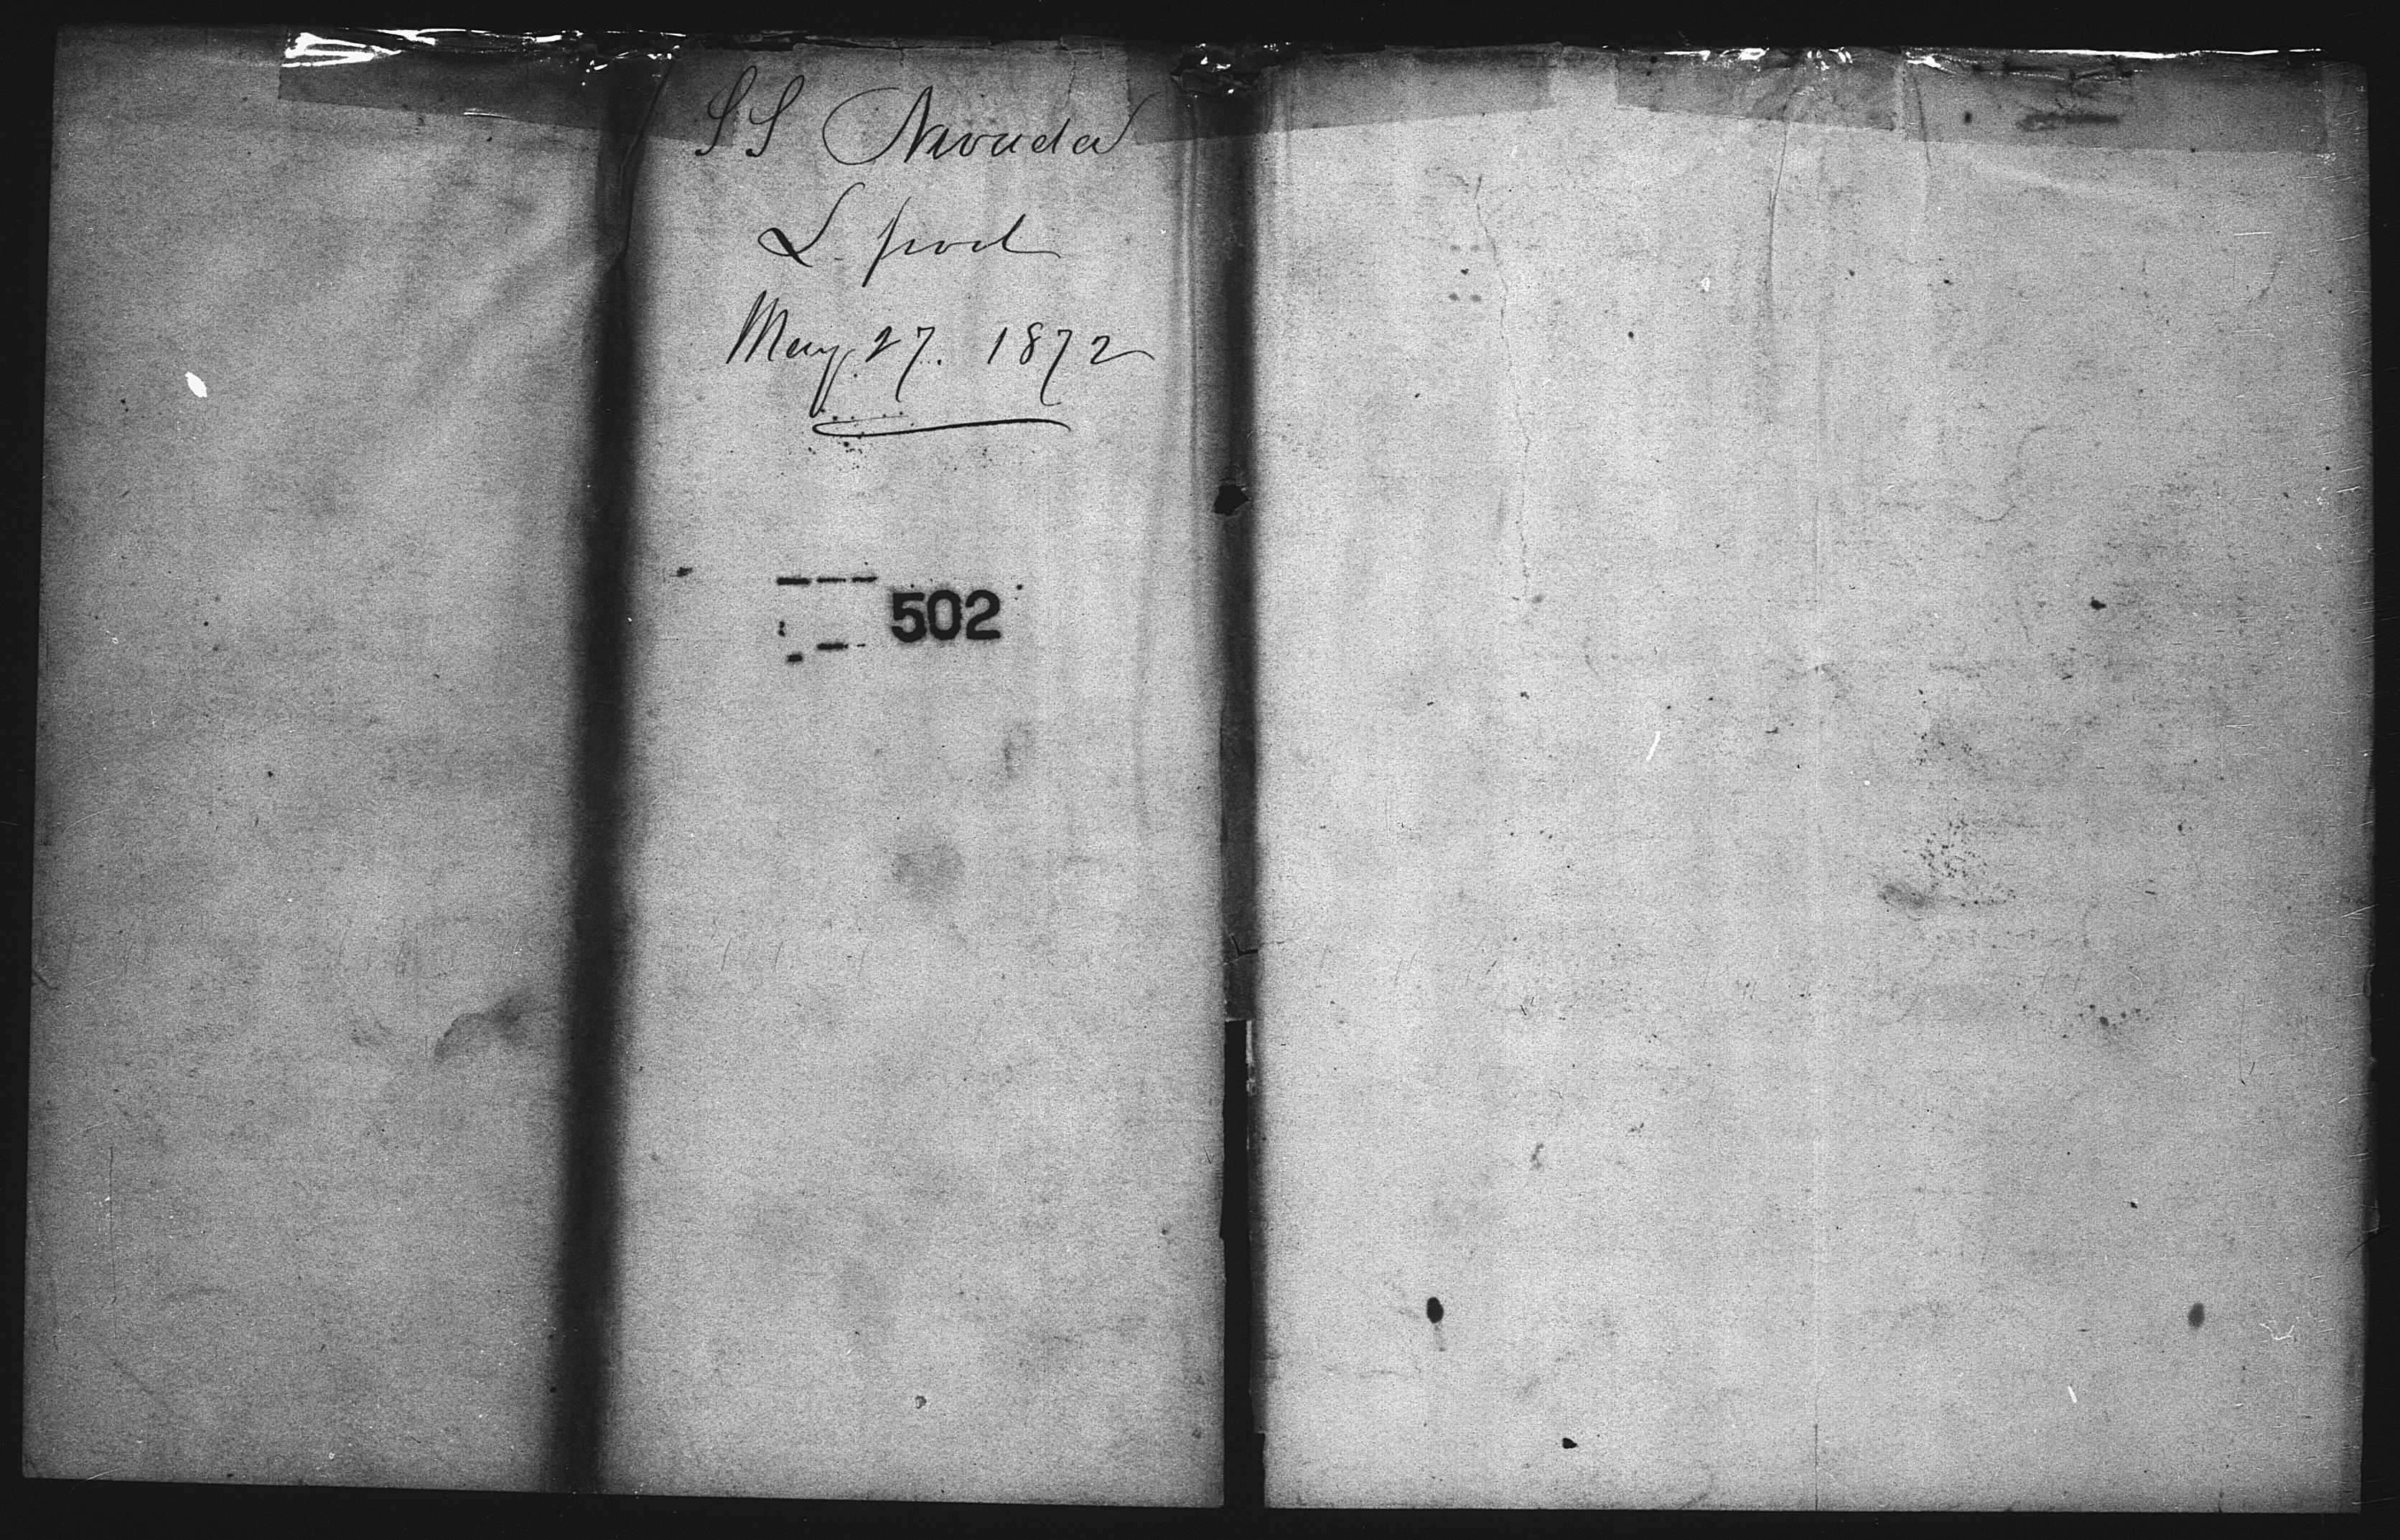 SS Nevada
L. pool
May. 27. 1872
502